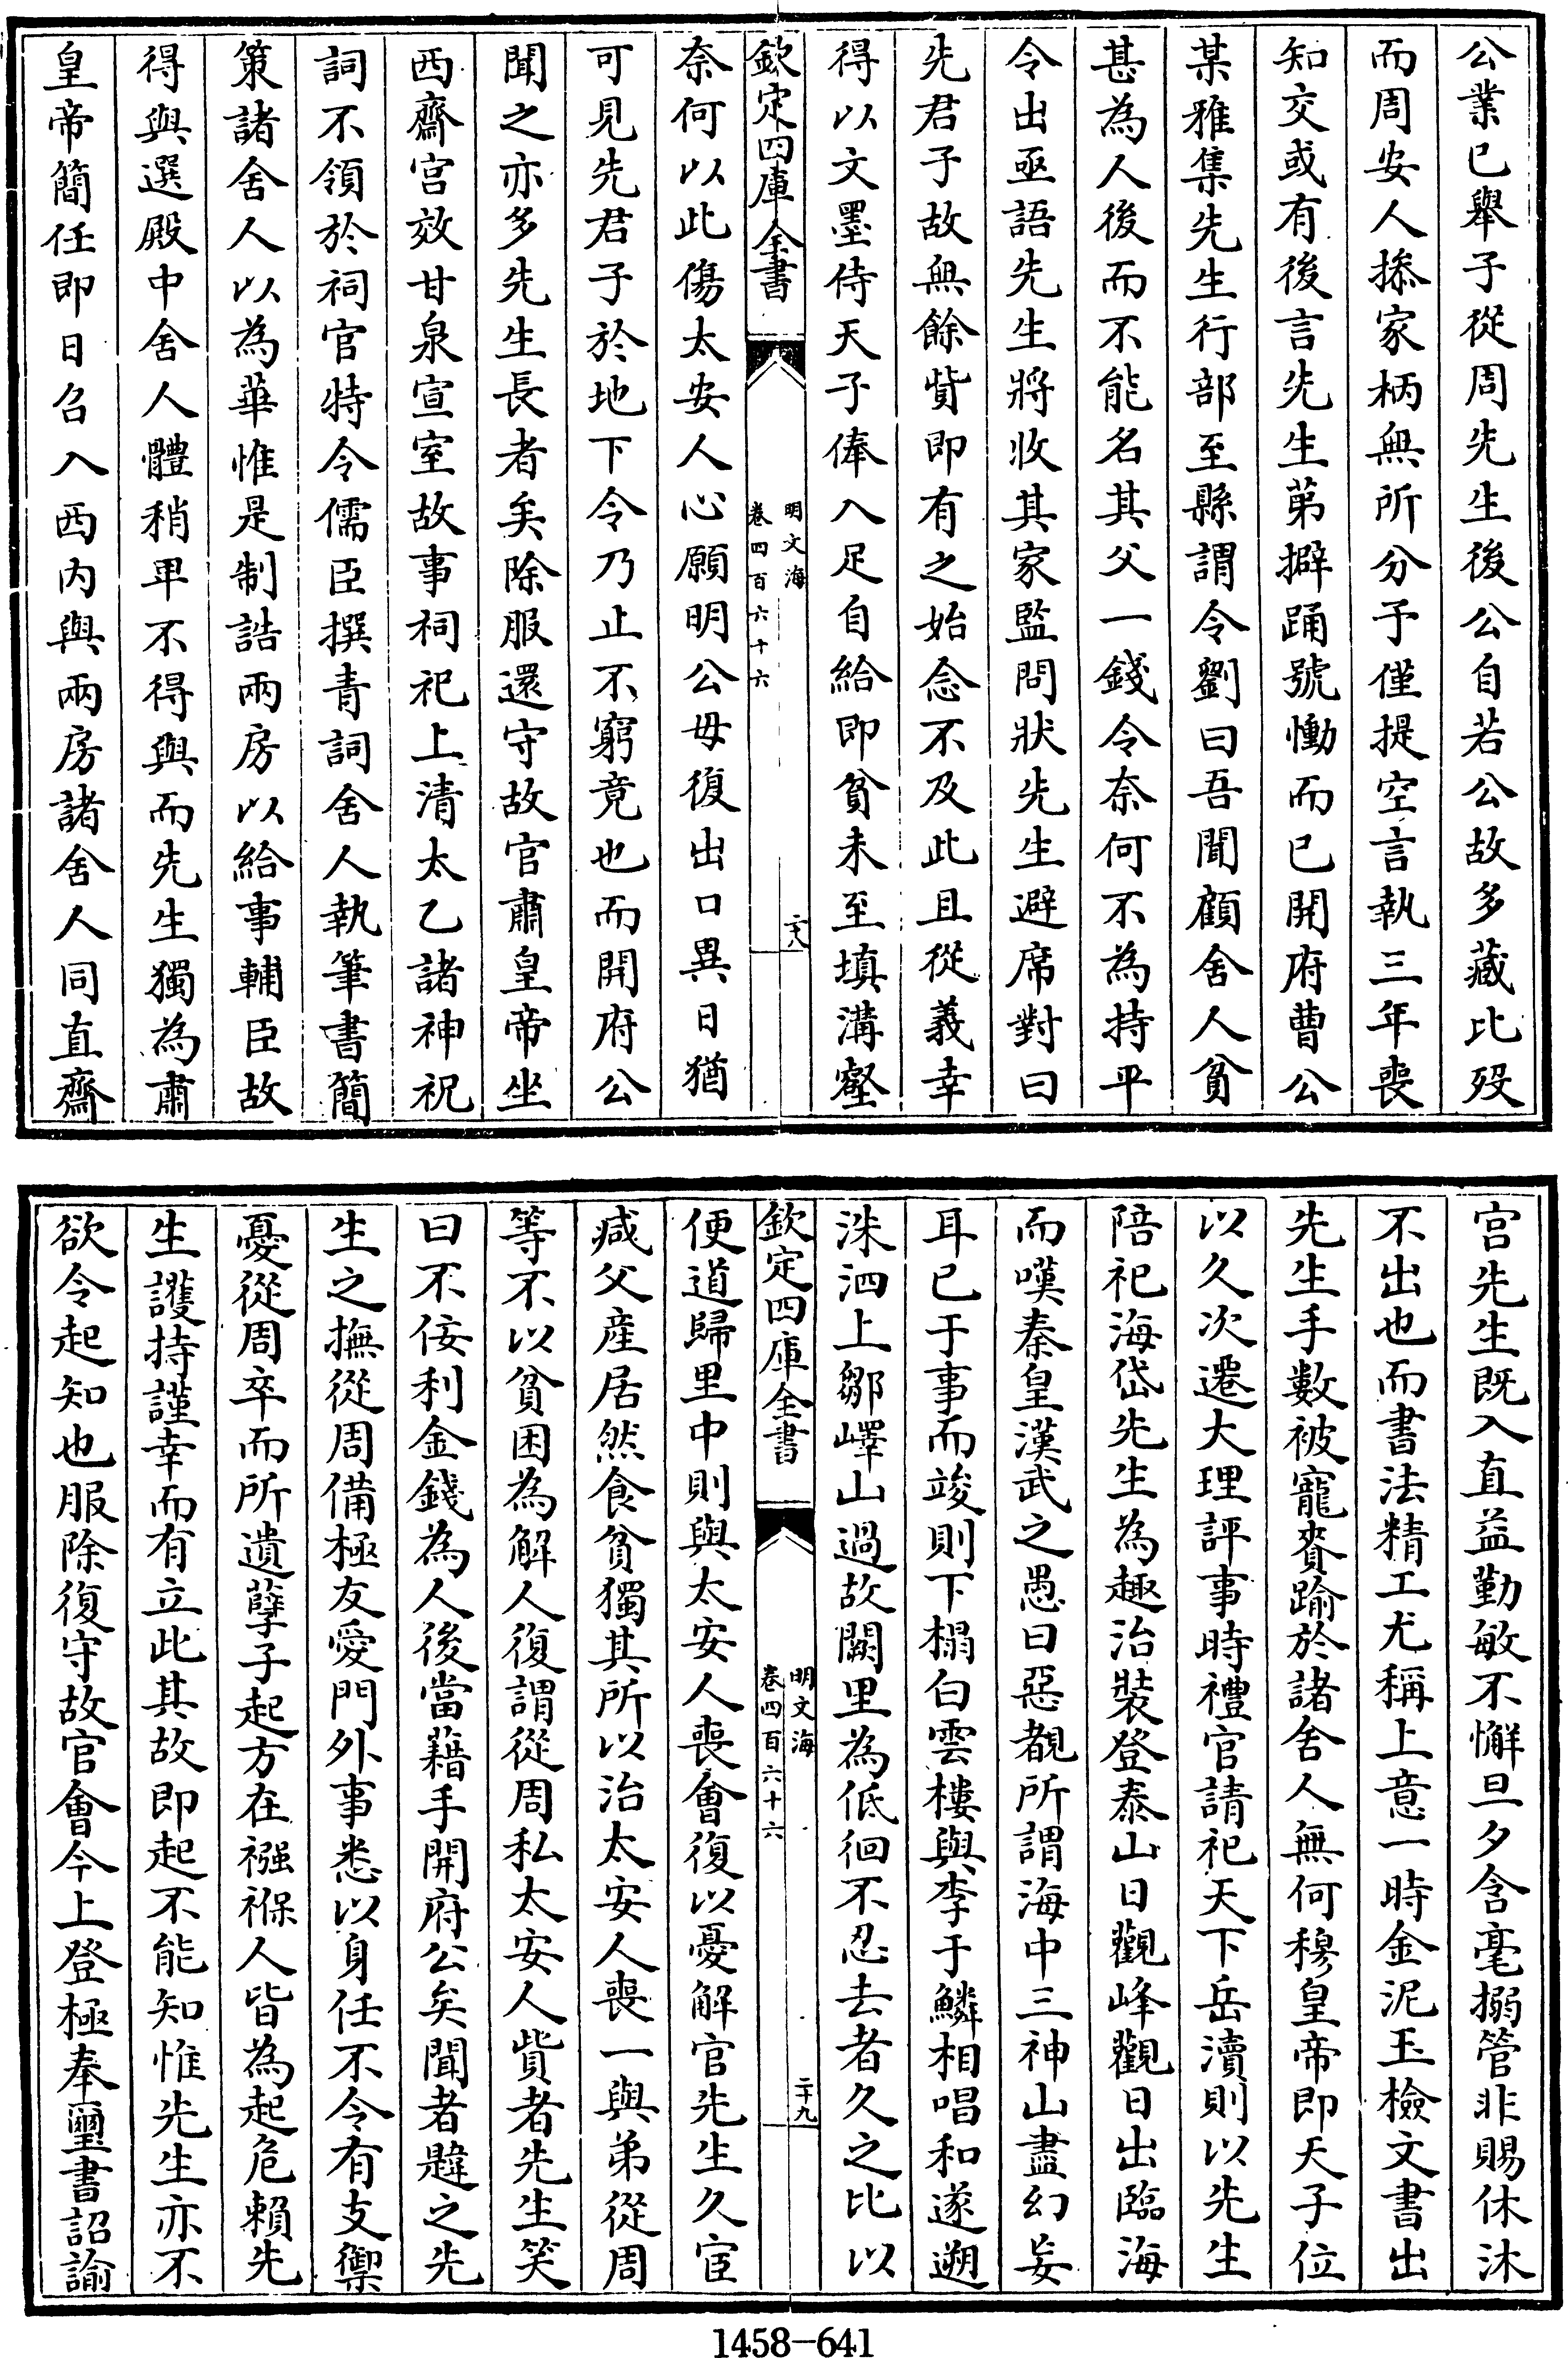 公業已舉子從周先生後公自若公故多藏比歿
而周安人掭家柄無所分予僅提空言執三年喪
知交或有後言先生第擗踊號慟而已開府曹公
某雅集先生行部至縣謂令劉曰吾聞顧舍人貧
甚為人後而不能名其父一錢令奈何不為持平
令出亟語先生將收其家監問狀先生避席對曰
先君子故無餘貲即有之始念不及此且從義幸
得以文墨侍天子俸入足自給即貧未至填溝壑
欽定四庫全書
明文海
卷四百六十六
二十八
奈何以此傷太安人心願明公毋復出口異日猶
可見先君子於地下令乃止不窮竟也而開府公
聞之亦多先生長者矣除服還守故官肅皇帝坐
西齋宫效甘泉宣室故事祠祀上清太乙諸神祝
詞不領於祠官特令儒臣撰青詞舍人執筆書簡
策諸舍人以為華惟是制誥兩房以給事輔臣故
得與選殿中舍人體稍卑不得與而先生獨為肅
皇帝簡任即日召入西内與兩房諸舍人同直齋
宫先生既入直益勤敏不懈旦夕含毫搦管非賜休沐
不出也而書法精工尤稱上意一時金泥玉檢文書出
先生手數被寵賚踰於諸舍人無何穆皇帝即天子位
以久次遷大理評事時禮官請祀天下岳瀆則以先生
陪祀海岱先生為趣治裝登泰山日觀峰觀日出臨海
而嘆秦皇漢武之愚曰惡覩所謂海中三神山盡幻妄
耳已于事而竣則下榻白雲樓與李于鱗相唱和遂遡
洙泗上鄒嶧山過故闕里為低徊不忍去者久之比以
欽定四庫全書
明文海
卷四百六十六
二十九
便道歸里中則與太安人喪會復以憂解官先生久宦
減父産居然食貧獨其所以治太安人喪一與弟從周
等不以貧困為解人復謂從周私太安人貲者先生笑
曰不佞利金錢為人後當藉手開府公矣聞者韙之先
生之撫從周備極友愛門外事悉以身任不令有支禦
憂從周卒而所遺孽子起方在襁褓人皆為起危賴先
生護持謹幸而有立此其故即起不能知惟先生亦不
欲令起知也服除復守故官會今上登極奉璽書詔諭
1458-641